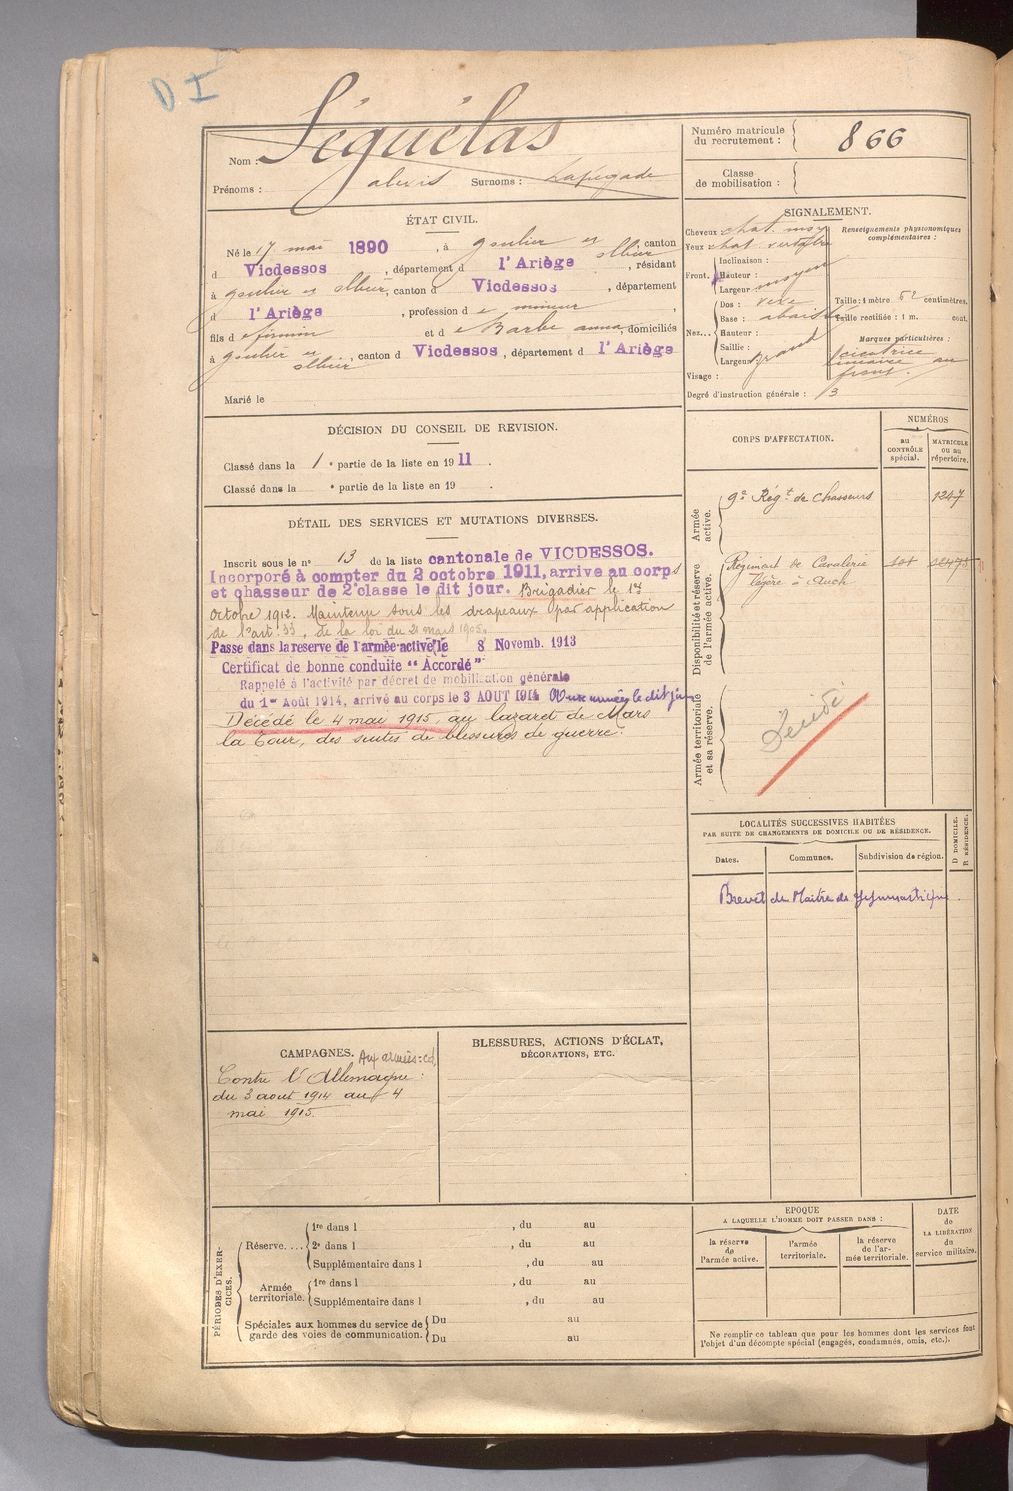 D I
Nom : Séguélas
Prénoms : alexis Surnoms : Lapégade
Numéro matricule
du recrutement : 866
Classe
de mobilisation :
ÉTAT CIVIL.
Né le 17 mai 1890, à goulier et ollier canton
d Vicdessos, département d l'Ariège, résidant
à goulier et ollier, canton d Vicdessos, département
d l'Ariège, profession d e mineur,
fils d e firmin et d e Barbe anna, domiciliés
à goulier et ollier, canton d Vicdessos, département d l'Ariège
Marié le
SIGNALEMENT.
Cheveux chat. moy
Yeux chat
Front. Inclinaison :
Hauteur :
Largeur moyen
Nez... Dos :
Base :
Hauteur :
Saillie :
Largeur grand
Visage :
Renseignements physionomiques
complémentaires :
Taille : 1 mètre 62 centimètres.
Taille rectifiée : 1 m. cent.
Marques particulières :
cicatrice
linéaire au
front.
Degré d'instruction générale : 3
DÉCISION DU CONSEIL DE REVISION.
Classé dans la 1 e partie de la liste en 1911.
Classé dans la e partie de la liste en 19 .
DÉTAIL DES SERVICES ET MUTATIONS DIVERSES.
Inscrit sous le n° 13 de la liste cantonale de VICDESSOS.
Incorporé à compter du 2 octobre 1911, arrive au corps
et chasseur de 2e classe le dit jour. Brigadier le 1er
Octobre 1912. Maintenu sous les drapeaux par application
de l'art. 33, de la loi du 21 mars 1905.
Passe dans la reserve de l'armée active le 8 Novemb. 1913
Certificat de bonne conduite "Accordé"
Rappelé à l'activité par décret de mobilisation générale
du 1er Août 1914, arrivé au corps le 3 AOUT 1914 Aux armées le dit jour
Décédé le 4 mai 1915, au lazaret de Mars
la Tour, des suites de blessures de guerre.
CORPS D'AFFECTATION.
NUMÉROS
au
CONTRÔLE
spécial.
MATRICULE
ou au
répertoire.
Armée
active.
9e Régt de Chasseurs 1247
Disponibilité et réserve
de l'armée active.
Régiment de Cavalerie
légère à Auch
Armée territoriale
et sa réserve.
LOCALITÉS SUCCESSIVES HABITÉES
PAR SUITE DE CHANGEMENTS DE DOMICILE OU DE RÉSIDENCE.
Dates. Communes. Subdivision de région. D DOMICILE. R RÉSIDENCE.
Brevet de Maitre de Gymnastique.
CAMPAGNES. Aux armées:
Contre l'Allemagne :
du 3 aout 1914 au 4
mai 1915.
BLESSURES, ACTIONS D'ÉCLAT,
DÉCORATIONS, ETC.
PÉRIODES D'EXERCICES.
Réserve.... 1re dans l , du au
2e dans l , du au
Supplémentaire dans l , du au
Armée
territoriale. 1re dans l , du au
Supplémentaire dans l , du au
Spéciales aux hommes du service de
garde des voies de communication. Du au
Du au
EPOQUE
A LAQUELLE L'HOMME DOIT PASSER DANS :
la réserve
de
l'armée active.
l'armée
territoriale.
la réserve
de l'ar-
mée territoriale.
DATE
de
LA LIBÉRATION
du
service militaire.
Ne remplir ce tableau que pour les hommes dont les services font
l'objet d'un décompte spécial (engagés, condamnés, omis, etc.).